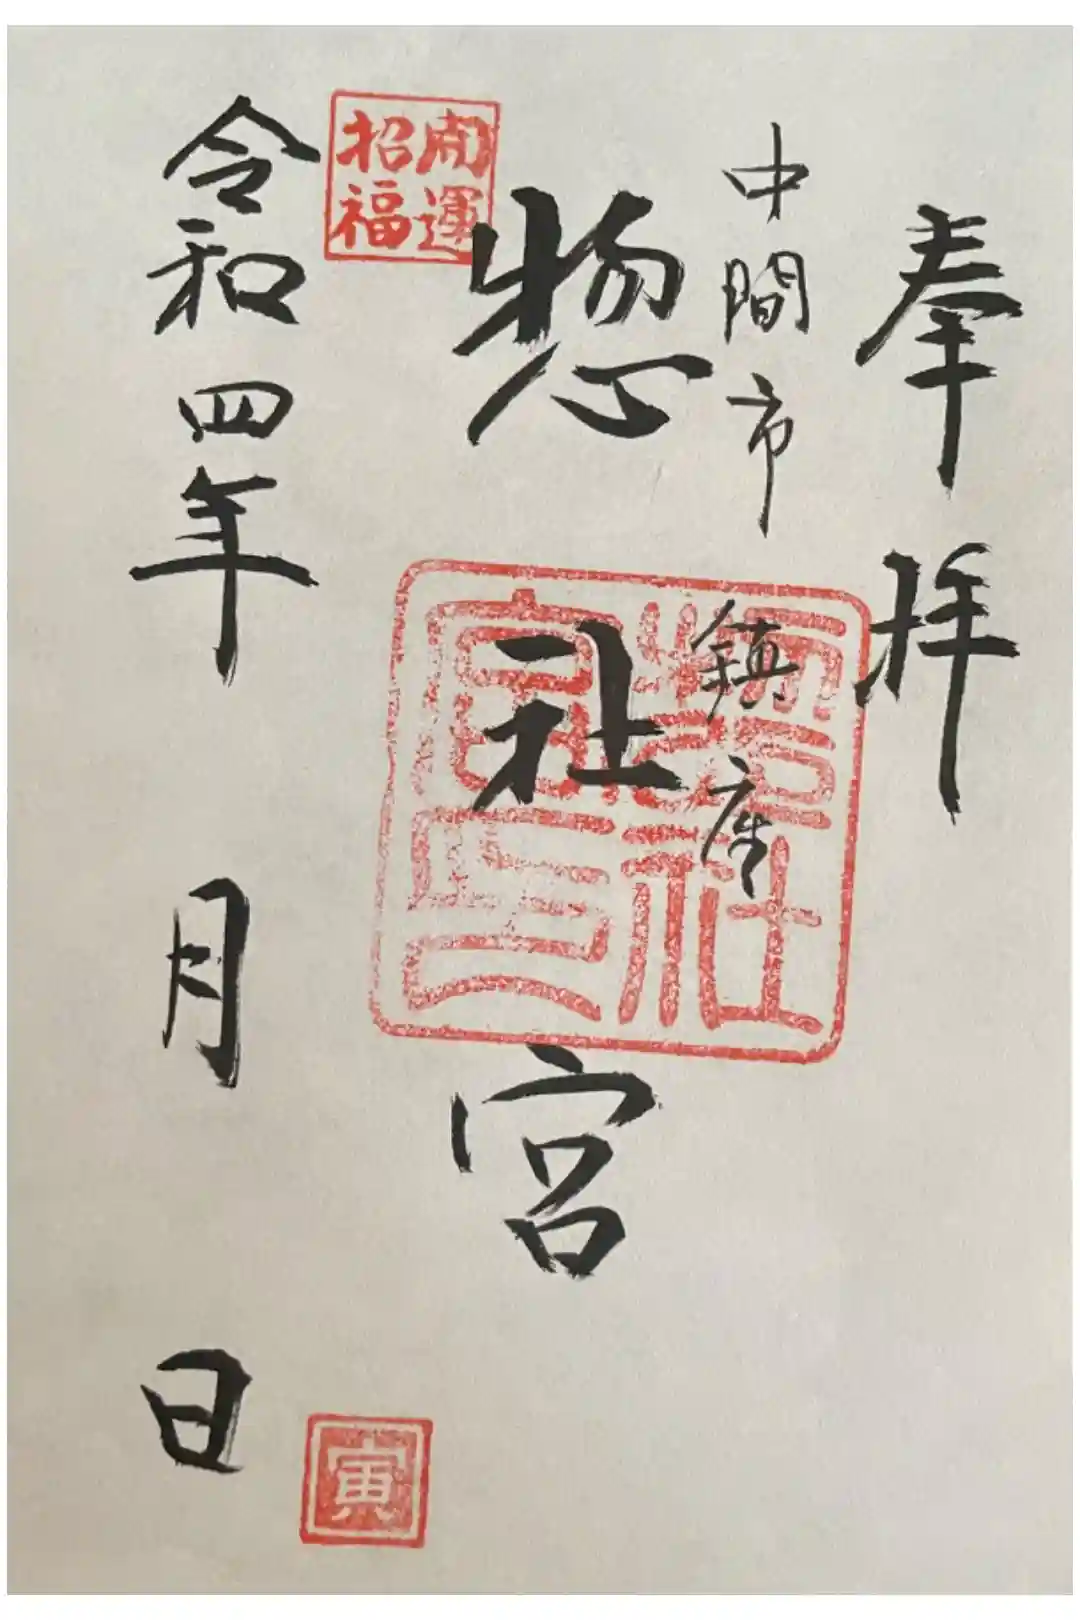 奉拝
中間市鎮座
惣社宮
開運
招福
惣社
宮印
令和四年 月 日
寅